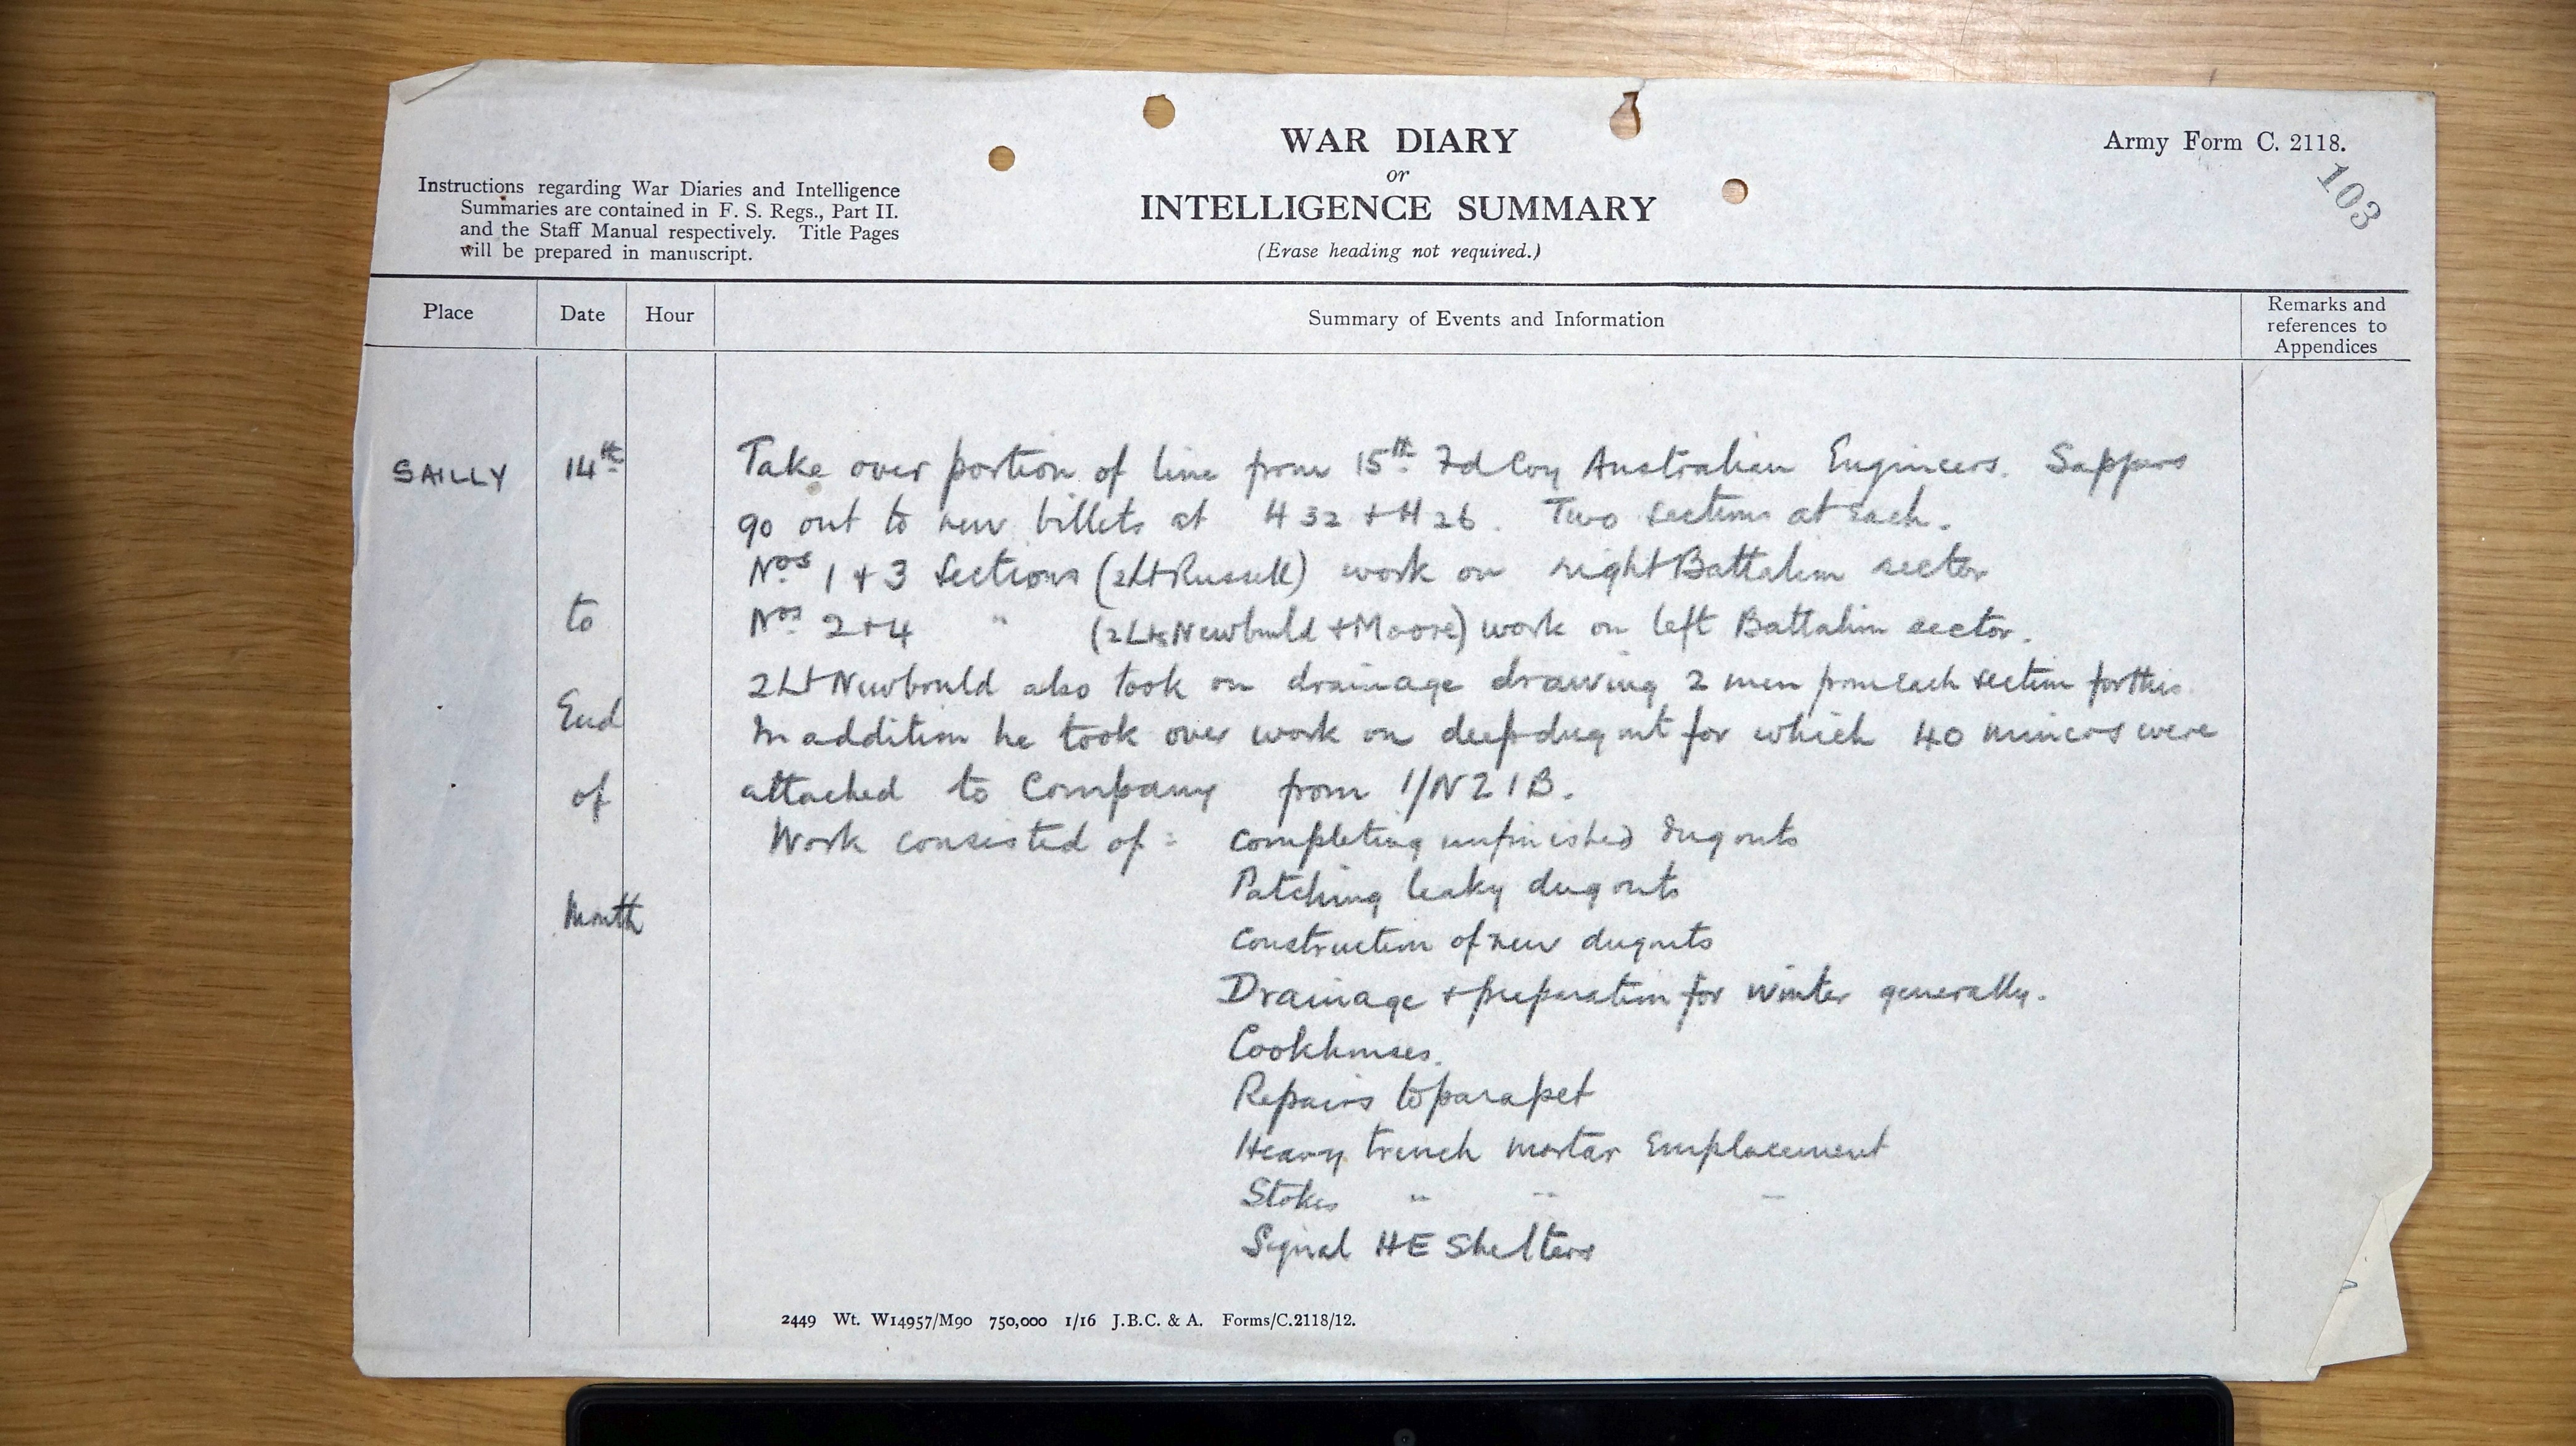 WAR DIARY
or
INTELLIGENCE SUMMARY
(Erase heading not required.)
Army Form C. 2118.
103
Instructions regarding War Diaries and Intelligence
Summaries are contained in F. S. Regs., Part II.
and the Staff Manual respectively. Title Pages
will be prepared in manuscript.
Place Date Hour Summary of Events and Information Remarks and references to Appendices
SAILLY 14th to End of Month
Take over portion of line from 15th Fd Coy Australian Engineers. Sappers
go out to new billets at H 32 + H 26. Two sections at each.
Nos 1 + 3 Sections (2Lt Russell) work on right Battalion sector
Nos 2 + 4 " (2Lts Newbould + Moore) work on left Battalion sector.
2Lt Newbould also took on drainage drawing 2 men from each section for this
In addition he took over work on deep dugout for which 40 miners were
attached to Company from 1/NZIB.
Work consisted of: completing unfinished dugouts
Patching leaky dugouts
Construction of new dugouts
Drainage + preparation for winter generally.
Cookhouses.
Repairs to parapet
Heavy trench mortar Emplacement
Stokes " " "
Signal HE Shelters
2449 Wt. W14957/M90 750,000 1/16 J.B.C. & A. Forms/C.2118/12.